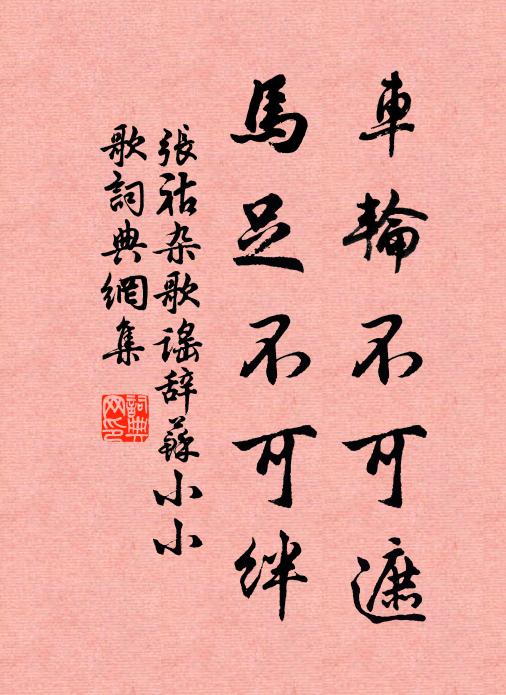 車輪不可遮
馬足不可絆
張祜杂歌谣辞蘇小小
歌詞典網集
詞典
网印